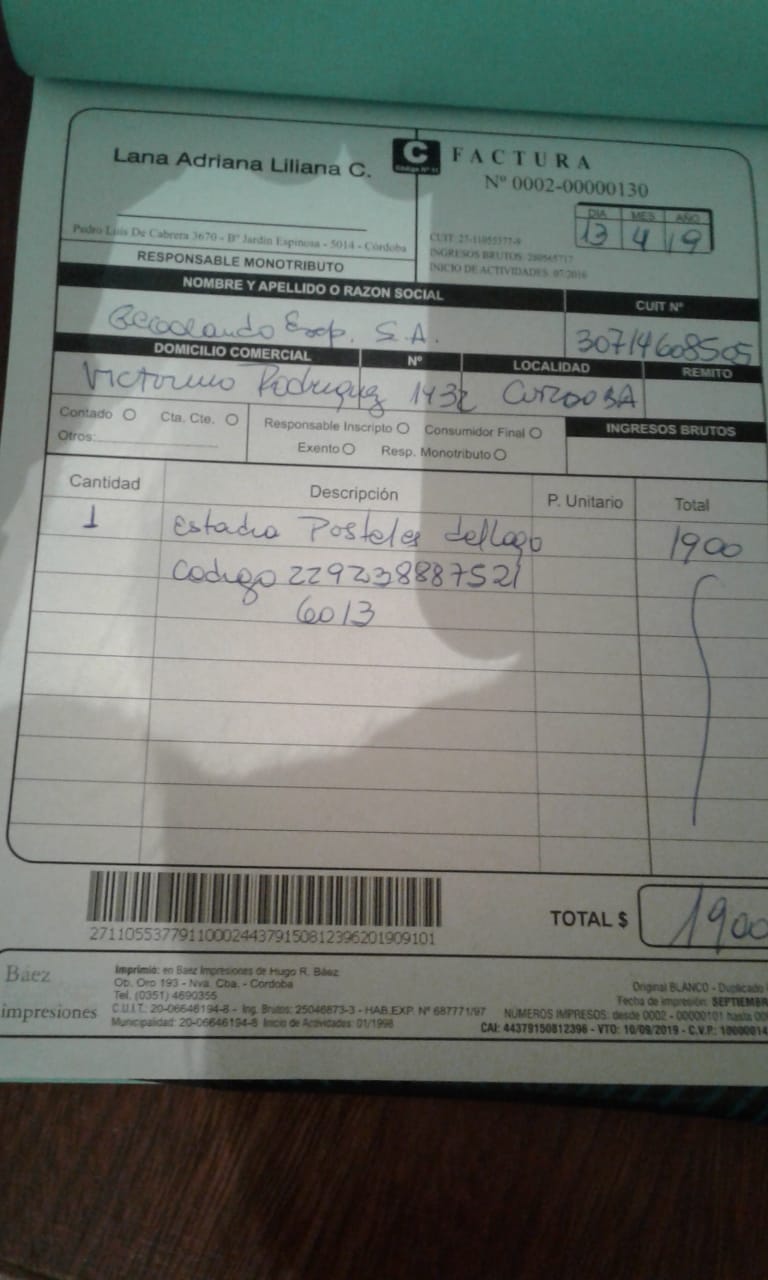 Lana Adriana Liliana C.
C
Código Nº 11
FACTURA
Nº 0002-00000130
DIA MES AÑO
13 4 19
Pedro Luis De Cabrera 3670 - Bº Jardin Espinosa - 5014 - Córdoba
RESPONSABLE MONOTRIBUTO
CUIT: 27-11055377-9
INGRESOS BRUTOS: 280565717
INICIO DE ACTIVIDADES: 07/2016
NOMBRE Y APELLIDO O RAZON SOCIAL
CUIT Nº
S.A.
30714608505
DOMICILIO COMERCIAL Nº LOCALIDAD REMITO
Victorino Rodriguez 1432 CORDOBA
Contado Cta. Cte.
Otros:
Responsable Inscripto Consumidor Final
Exento Resp. Monotributo
INGRESOS BRUTOS
Cantidad Descripción P. Unitario Total
1 Estadia Posteles del Lago 1900
Codigo 229238887521
6013
271105537791100024437915081239620190910​1
TOTAL $ 1900
Báez
impresiones
Imprimió: en Báez Impresiones de Hugo R. Báez
Ob. Oro 193 - Nva. Cba. - Córdoba
Tel. (0351) 4690355
C.U.I.T.: 20-06646194-8 - Ing. Brutos: 25046873-3 - HAB.EXP. Nº 687771/97
Municipalidad: 20-06646194-8 Inicio de Actividades: 01/1998
Original BLANCO - Duplicado
Fecha de impresión: SEPTIEMBR
NÚMEROS IMPRESOS: desde 0002 - 00000101 hasta 00
CAI: 44379150812396 - VTO: 10/09/2019 - C.V.P.: 10000014